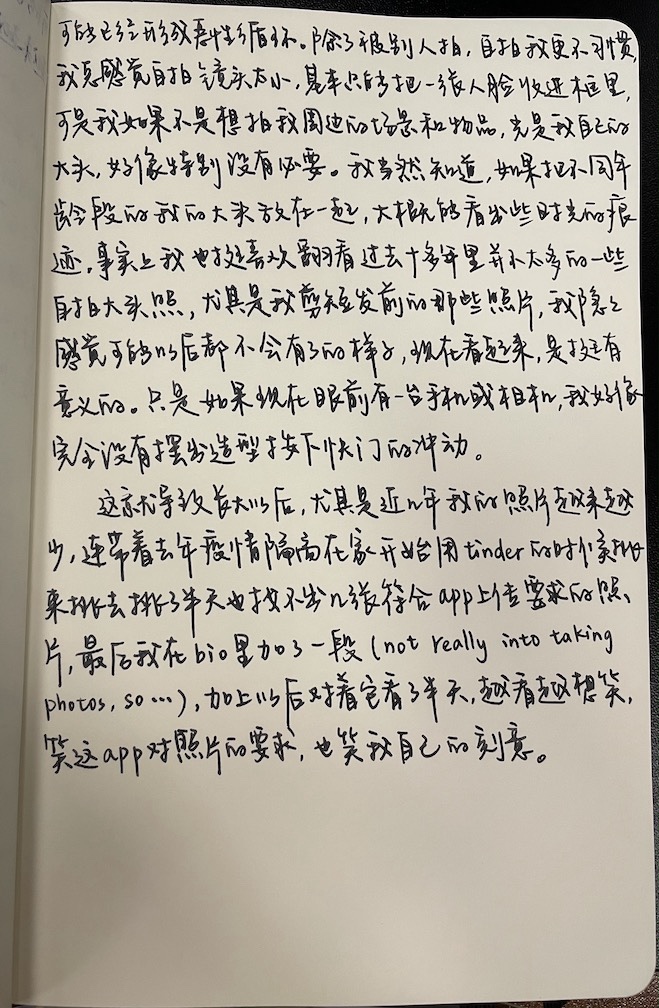 可能已经形成恶性循环。除了被别人拍,自拍我更不习惯,
我总感觉自拍镜头太小,基本只能把一张人脸收进框里,
可是我如果不是想拍我周边的场景和物品,光是我自己的
大头,好像特别没有必要。我当然知道,如果把不同年
龄段的我的大头放在一起,大概能看出些时光的痕
迹,事实上我也挺喜欢翻看过去十多年里并不太多的一些
自拍大头照,尤其是我剪短发前的那些照片,我隐隐
感觉可能以后都不会有了的样子,现在看起来,是挺有
意义的。只是如果现在眼前有一台手机或相机,我好像
完全没有摆出造型按下快门的冲动。
这就导致长大以后,尤其是近几年我的照片越来越
少,连带着去年疫情隔离在家开始用tinder的时候挑
来挑去挑了半天也找不出几张符合app上传要求的照
片,最后我在bio里加了一段(not really into taking
photos, so …),加上以后对着它看了半天,越看越想笑,
笑这app对照片的要求,也笑我自己的刻意。